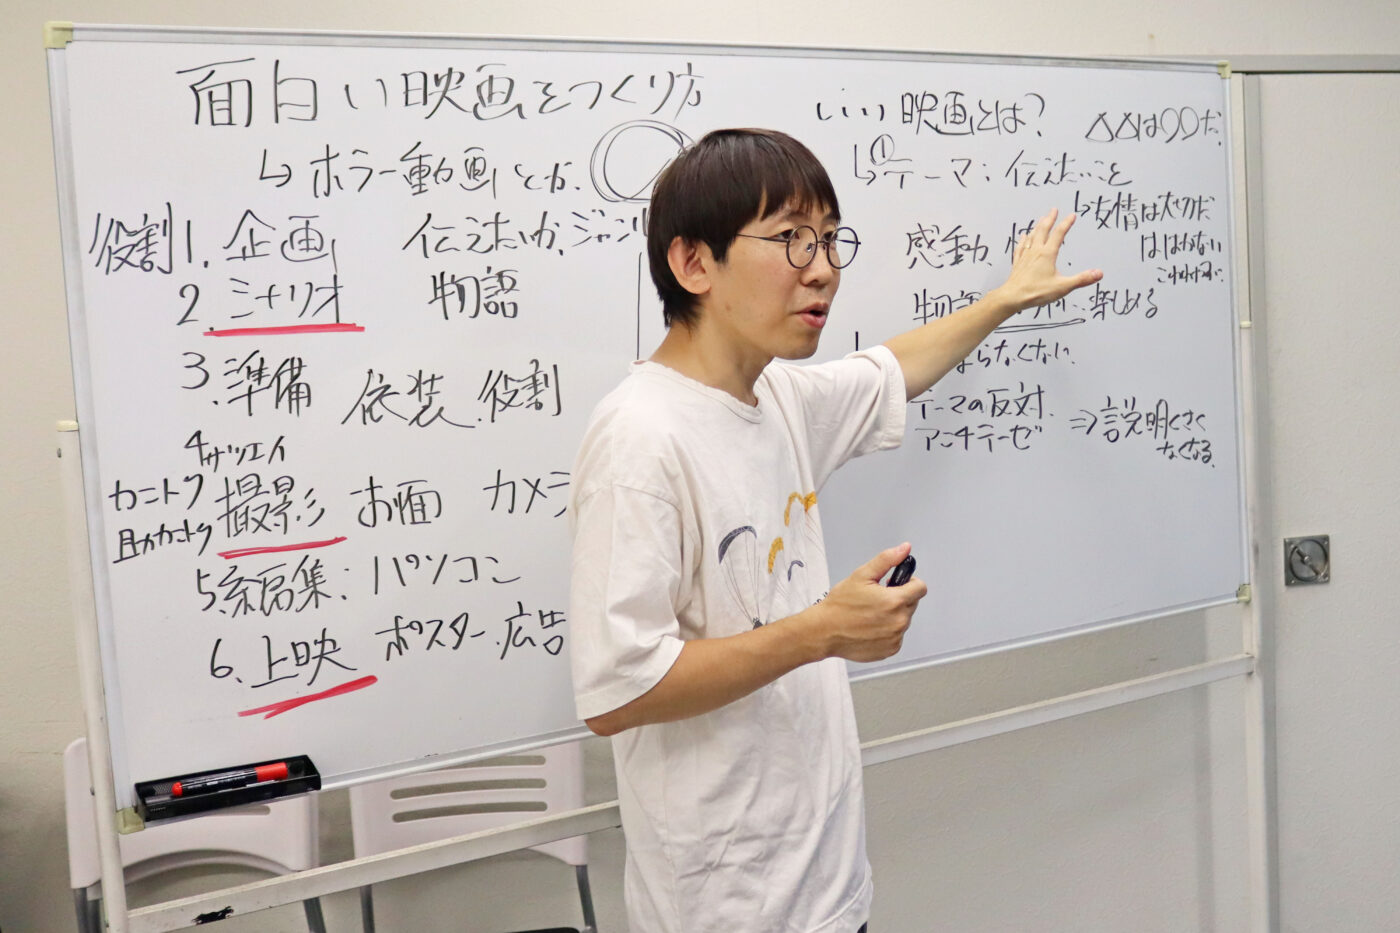 面白い映画をつくり方
↳ ホラー動画とか、
役割 1. 企画 伝えたいか、ジャンル
2. シナリオ 物語
3. 準備 依装、役割
4 サツエイ
カントク 撮影 お面 カメラ
助カントク
5. 編集: パソコン
6. 上映 ポスター、広告
いい映画とは? △△は○○だ
↳ ① テーマ: 伝えたいこと
↳ 友情は大切だ
感動、
ははかない
物語 楽しめる
ならなくない
テーマの反対、
アンチテーゼ ⇒ 説明くさく
なくなる。